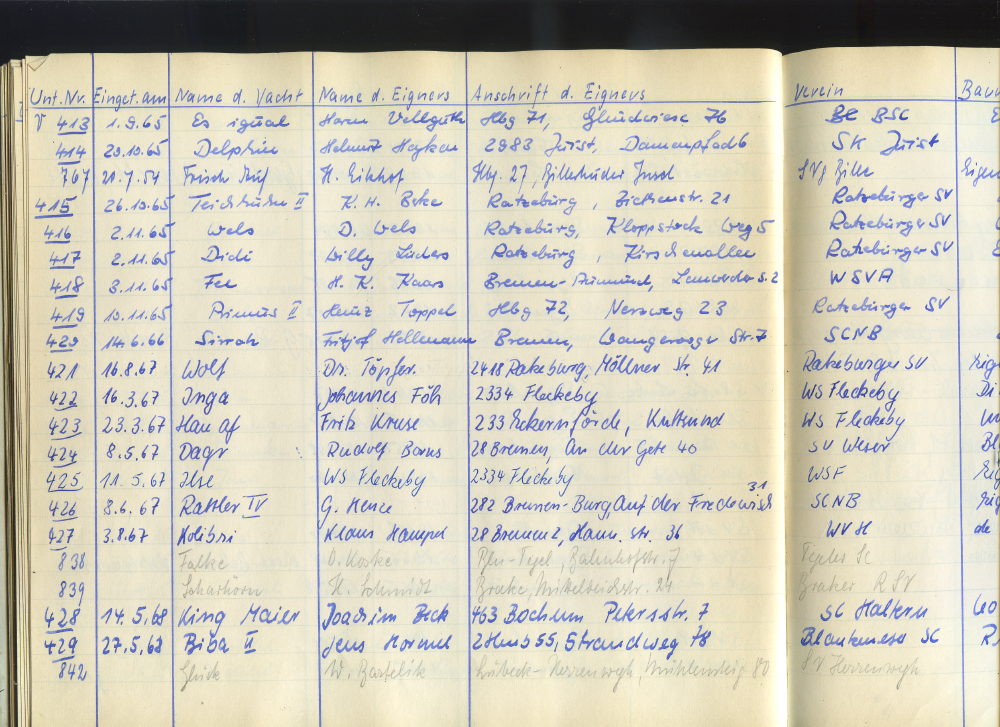 Unt. Nr. Einget. am Name d. Yacht Name d. Eigners Anschrift d. Eigners Verein
V 413 1.9.65 Es igual Hbg 71, 76 BSC
414 20.10.65 Delphin Helmut Heyken 2983 Juist, Damenpfad 6 SK Juist
767 21.7.54 Frisch Auf H. Eikhof Hbg. 27, Billerhuder Insel SVg Bille Eigen
415 26.10.65 II K. H. Ratzeburg, str. 21 Ratzeburger SV
416 2.11.65 Wels D. Wels Ratzeburg, Kloppstock Weg 5 Ratzeburger SV
417 2.11.65 Didi Willy Lüders Ratzeburg, Kirschenallee Ratzeburger SV
418 3.11.65 Fee H. K. Kaars Bremen- S. 2 WSVA
419 10.11.65 Primus II Heinz Toppel Hbg 72, 23 Ratzeburger SV
420 14.6.66 Sirrah Fritjof Hellmann Bremen, Wangerooger Str. 7 SCNB
421 16.8.67 Wolf Dr. Töpfer. 2418 Ratzeburg, Möllner Str. 41 Ratzeburger SV
422 16.3.67 Inga Johannes Föh 2334 Fleckeby WS Fleckeby
423 23.3.67 Hau af Fritz Kruse 233 Eckernförde, WS Fleckeby
424 8.5.67 Dagr Rudolf 28 Bremen, An der Gete 40 SV Weser
425 11.5.67 Ilse WS Fleckeby 2334 Fleckeby WSF
426 8.6.67 Rattler IV G. 282 Bremen-Burg, Auf der 31 SCNB
427 3.8.67 Kolibri Klaus Hampel 28 Bremen 2, Hann. Str. 36 WVH
838 Falke O. Bln-Tegel, Bahnhofstr. 7 Tegler SC
839 Scharhörn H. Schmidt Brake, Mitteldeichstr. 24 Braker R SV
428 14.5.68 King Maier Joachim Bock 463 Bochum Petersstr. 7 SC Haltern
429 27.5.68 Biba II Jens 2 Hmb 55, Strandweg 78 Blankeneser SC
842 Glück W. Lübeck-Herrenwyk, 80 SV Herrenwyk